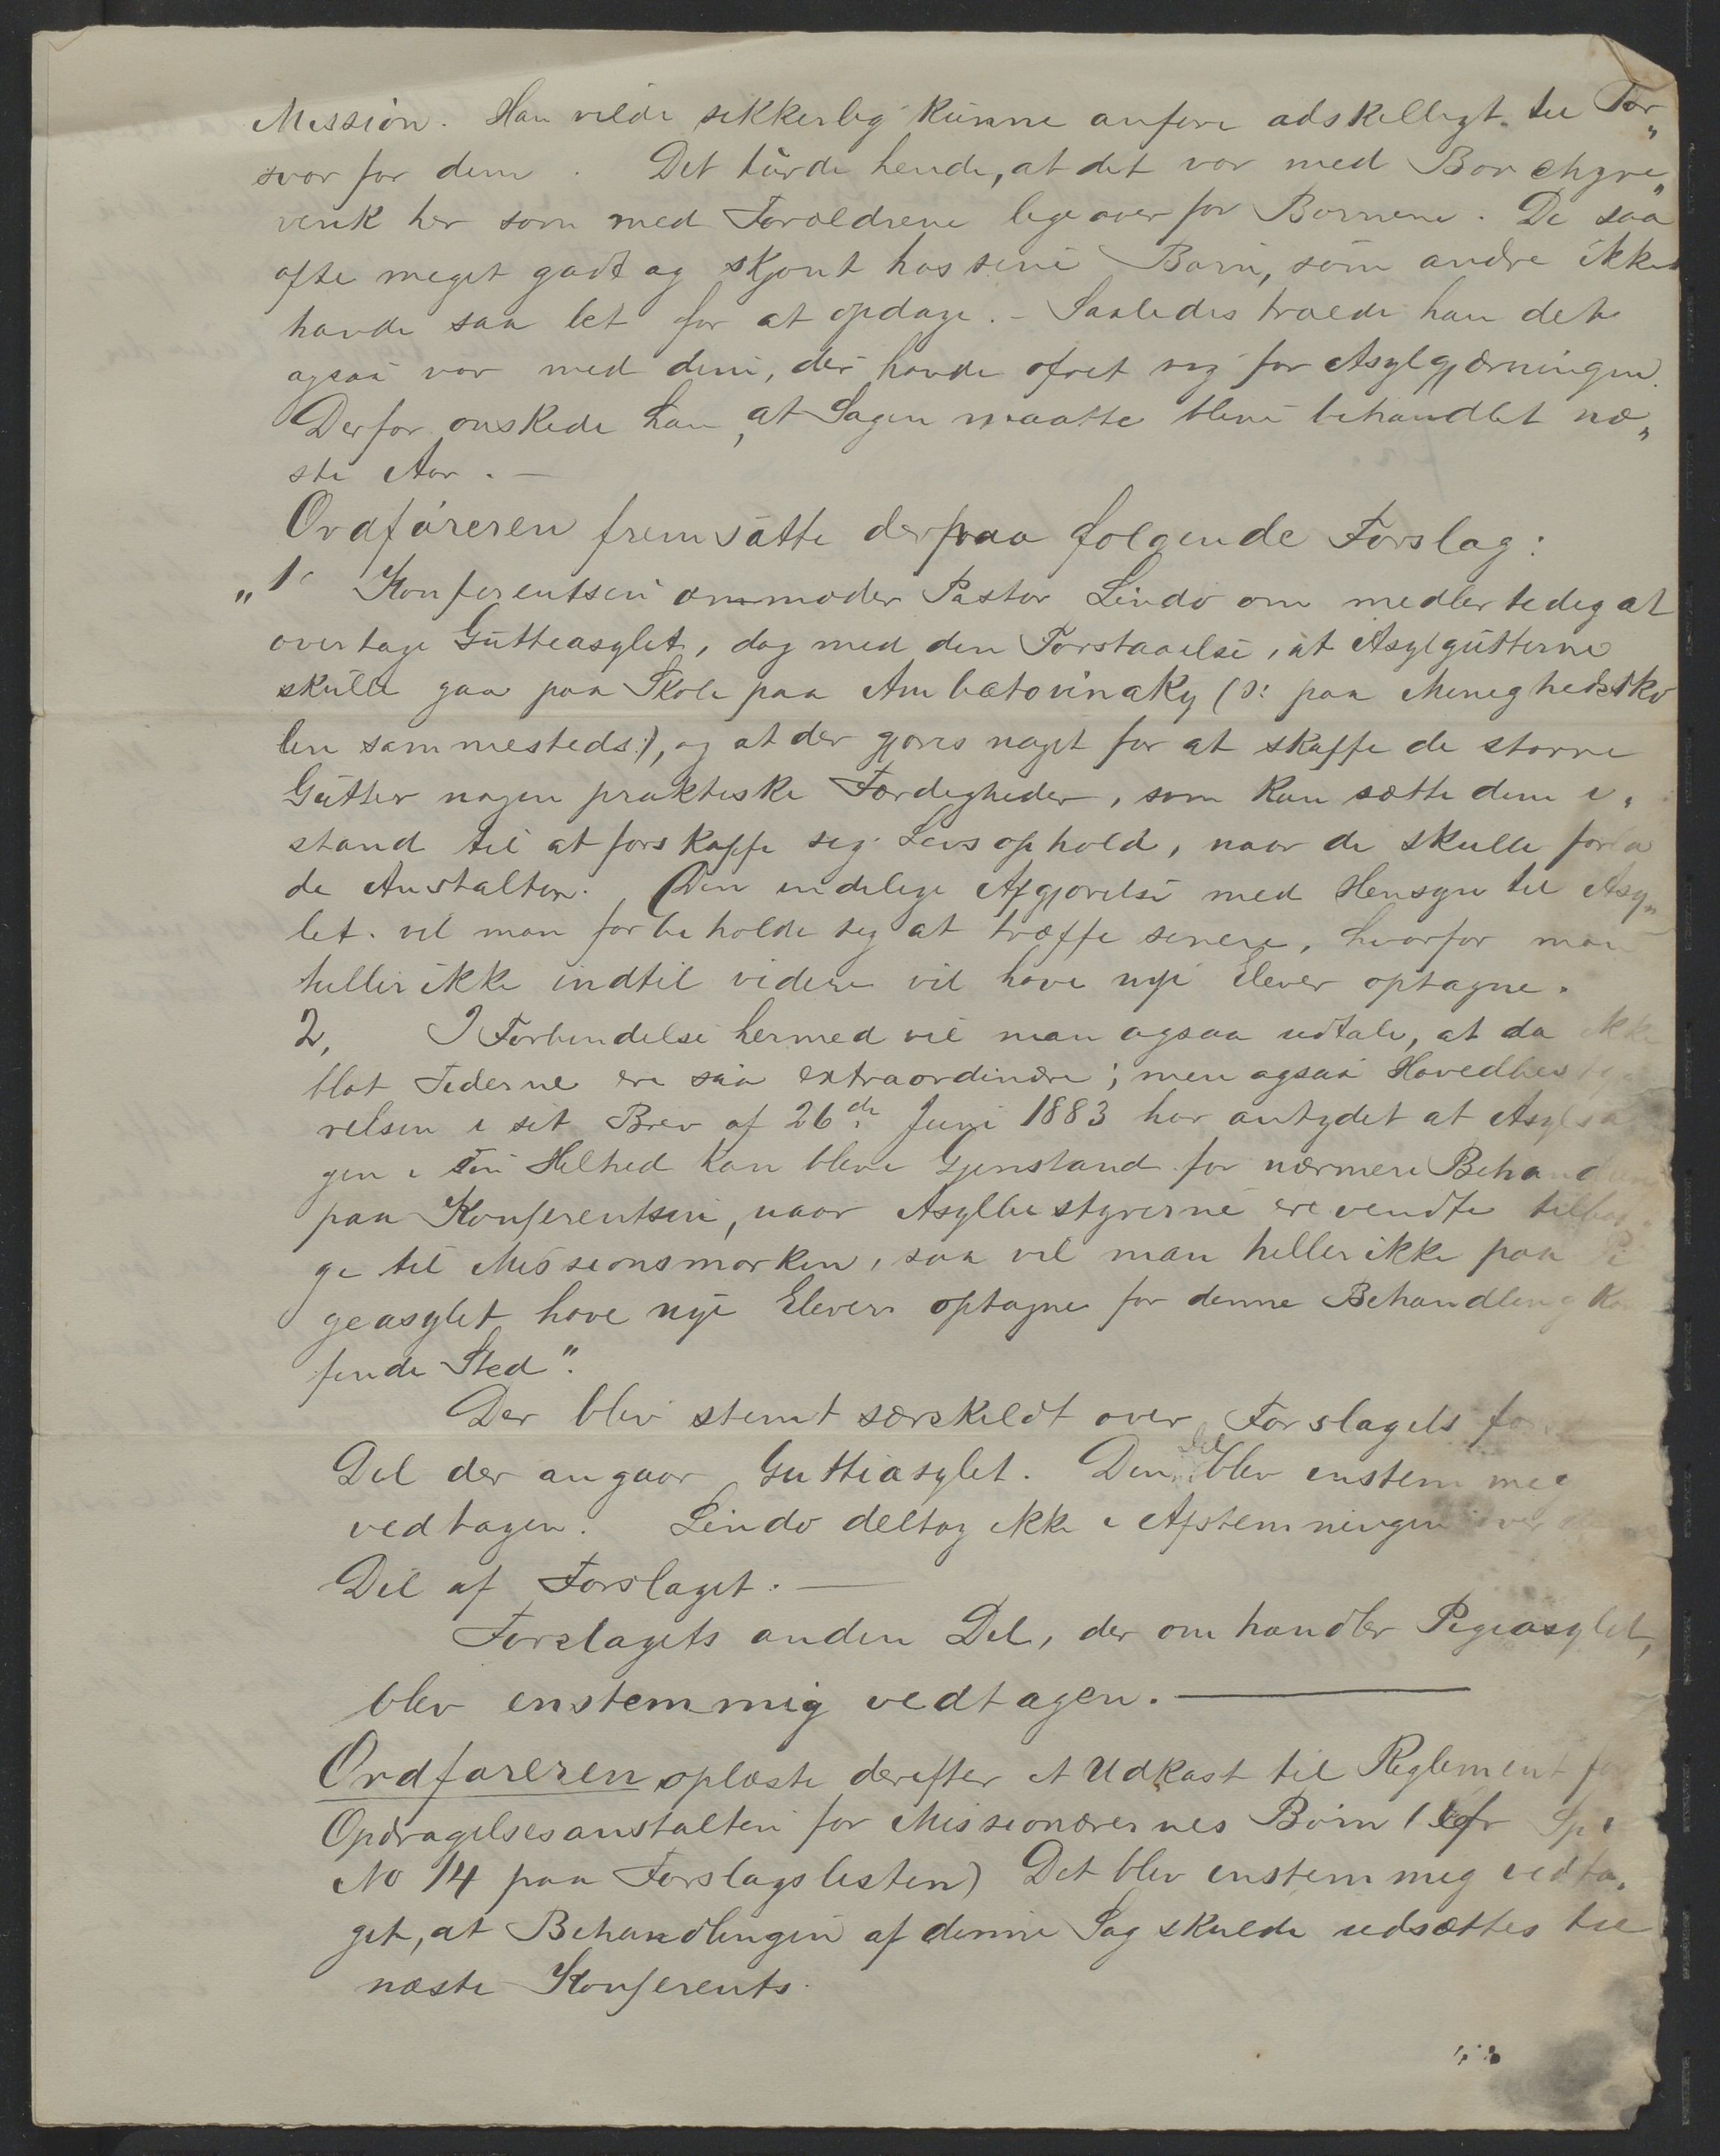 Mission. Han vilde sikkerlig kunne anføre adskilligt til For„
svar for dem. Det turde hende, at det var med Borchgre„
venk her som med Forældrene ligeoverfor Børnene. De saa
ofte meget godt og skjønt hos sine Børn, som andre ikke
havde saa let for at opdage. – Saaledes troede han det
ogsaa var med dem, der havde ofret sig for Asylgjærningen.
Derfor ønskede han, at Sagen maatte blive behandlet næ„
ste Aar. —
Ordføreren fremsatte derpaa følgende Forslag:
„1. Konferentsen anmoder Pastor Lindø om midlertidig at
overtage Gutteasylet, dog med den Forstaaelse, at Asylgutterne
skulle gaa paa Skole paa Ambatovinaky (ɔ: paa Menighedsko
len sammesteds), og at der gjøres noget for at skaffe de større
Gutter nogen praktiske Færdigheder, som kan sætte dem i„
stand til at forskaffe sig Livsophold, naar de skulle forla
de Anstalten. Den endelige Afgjørelse med Hensyn til Asy„
let vil man forbeholde sig at træffe senere, hvorfor man
heller ikke indtil videre vil have nye Elever optagne.
2, I Forbindelse hermed vil man ogsaa udtale, at da ikke
blot Tiderne ere saa extraordinære; men ogsaa Hovedbesty
relsen i sit Brev af 26de Juni 1883 har antydet at Asylsa
gen i sin Helhed kan blive Gjenstand for nærmere Behand
paa Konferentsen, naar Asylbestyrerne ere vendte tilba„
ge til Missionsmarken, saa vil man heller ikke paa Pi
geasylet have nye Elever optagne før denne Behandling kan
finde Sted".
Der blev stemt særskildt over Forslagets før
Del der angaar Gutteasylet. Den Del blev enstemmig
vedtagen. Lindø deltog ikke i Afstemningen over denne
Del af Forslaget. —
Forslagets anden Del, der omhandler Pigeasylet,
blev enstemmig vedtagen. —
Ordføreren oplæste derefter et Udkast til Reglement for
Opdragelsesanstalten for Missionærernes Børn (cfr Sp
No 14 paa Forslagslisten) Det blev enstemmig vedta„
get, at Behandlingen af denne Sag skulde udsættes til
næste Konferents.